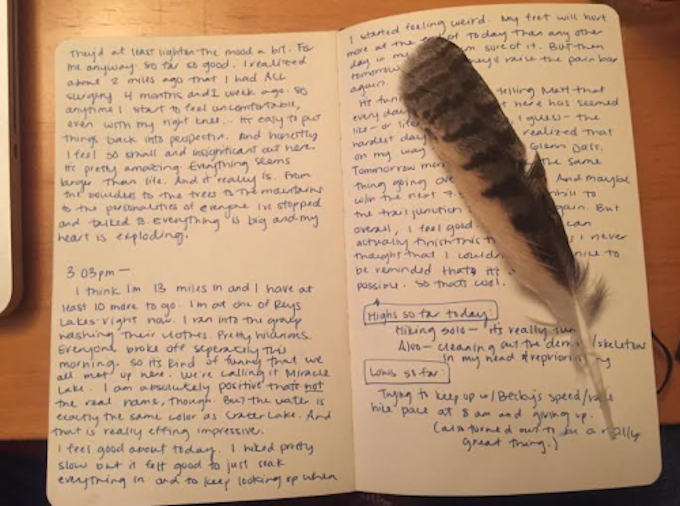 They'd at least lighten the mood a bit. For
me anyway. So far so good. I realized
about 2 miles ago that I had ACL
surgery 4 months and 1 week ago. So
anytime I start to feel uncomfortable,
even with my right knee... its easy to put
things back into perspectiv. And honestly
I feel so small and insignificant out here.
Its pretty amazing. Everything seems
larger than life. And it really is. From
the boulders to the trees to the mountains
to the personalities of everyone I've stopped
and talked to. Everything is big and my
heart is exploding.
3:03pm —
I think I'm 13 miles in and I have at
least 10 more to go. I'm at one of Rays
Lakes right now. I ran into the group
washing their clothes. Pretty hilarious.
Everyone broke off seperately this
morning. So its kind of funny that we
all met up here. We're calling it Miracle
Lake. I am absolutely positive thats not
the real name, though. But the water is
exactly the same color as Crater Lake. And
that is really effing impressive.
I feel good about today. I hiked pretty
slow but it felt good to just soak
everything in and to keep looking up when
I started feeling weird. My feet will hurt
more at the of today than any other
day in my sure of it. But then
tomorrow they'd raise the pain bar
again.
Its funny telling Matt that
every day here has seemed
like - or I guess - the
hardest day realized that
on my way Glenn Pass.
Tomorrow the same
thing going over And maybe
w/in the next
the trail junction again. But
overall, I feel good can
actually finish this I never
thought that I nice to
be reminded that its
possible. So thats cool.
Highs so far today:
Hiking solo - its really fun
Also - cleaning out the /skeletons
in my head &
Lows so far:
Trying to keep up w/ Becky's speed/
hike pace at 8 am and giving up.
(also turned out to be a really
great thing.)